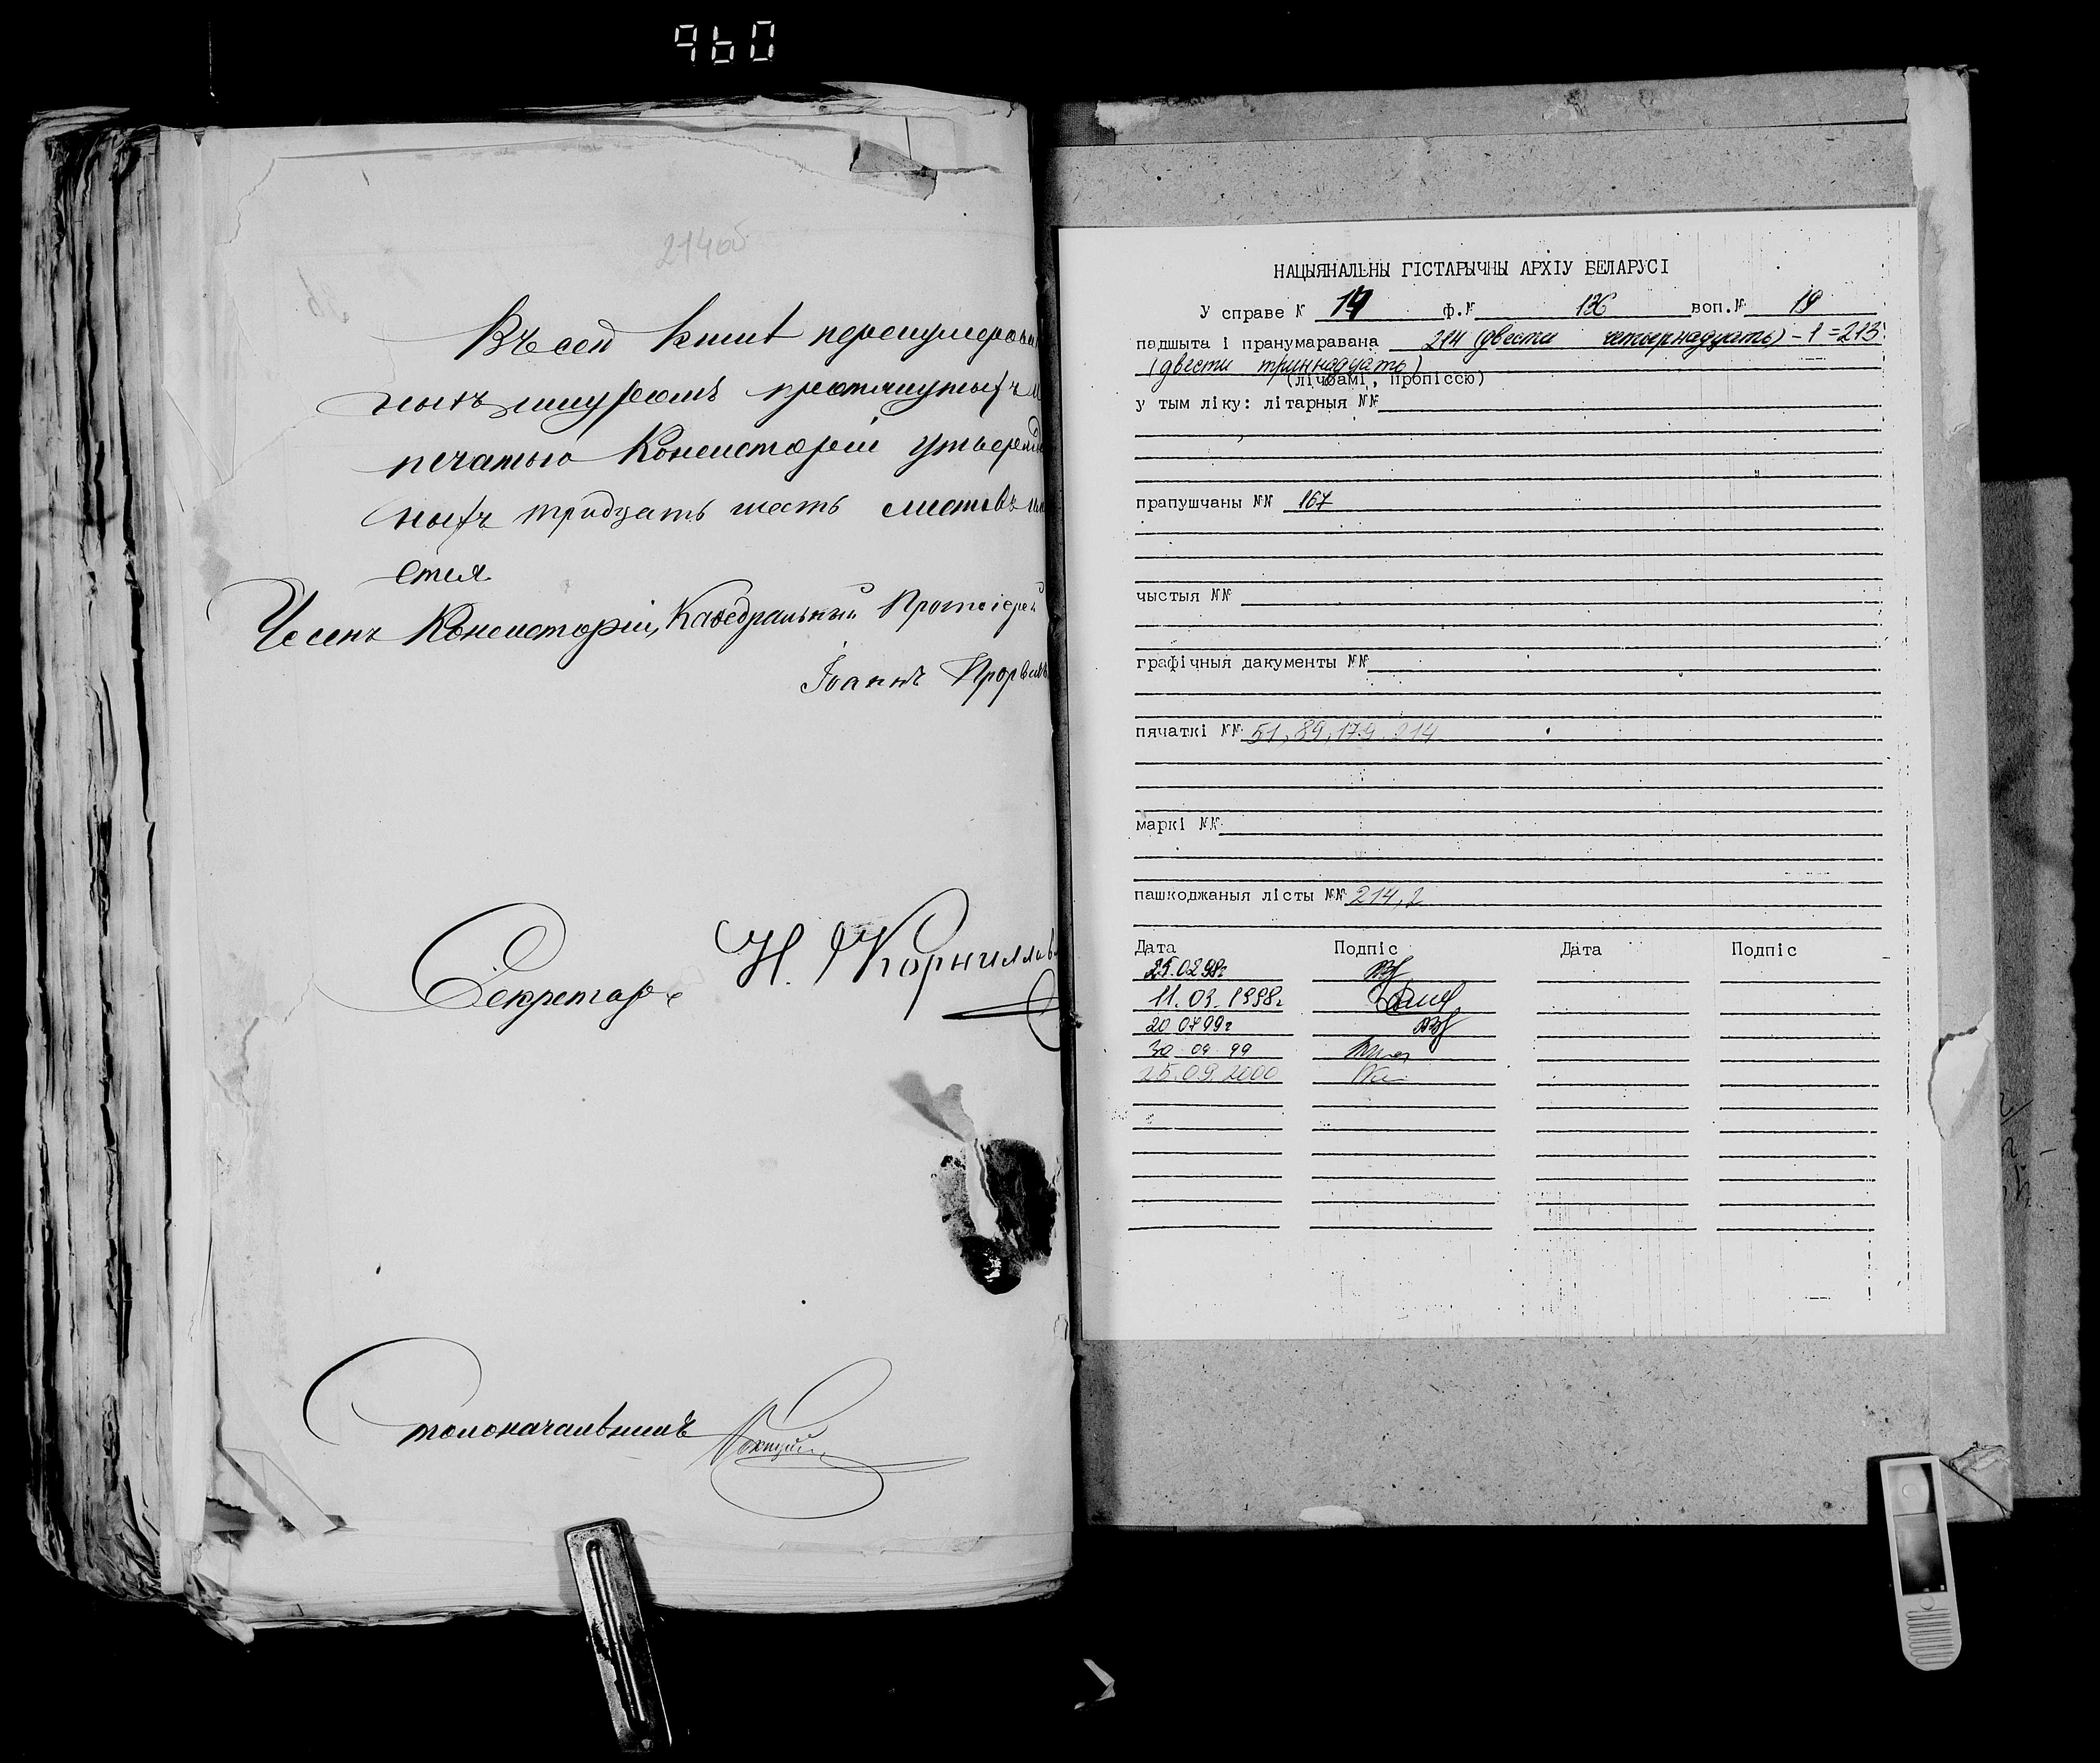 960
214об
Въ сей книгѣ перенумерован
ныхъ шнуромъ протянутыхъ и
печатью Консисторіи утвержд
ныхъ тридцать шесть листовъ
ется
Членъ Консисторіи, Каѳедральный Протоіерей
Іоаннъ
Секретарь Н. Корнилов
Столоначальникъ
НАЦЫЯНАЛЬНЫ ГІСТАРЫЧНЫ АРХІУ БЕЛАРУСІ
У справе № 14 ф.№ 136 воп.№ 19
падшыта і пранумаравана 214 (двести четырнадцать) - 1 = 213
(двести триннадцать)
(лічбамі, пропіссю)
у тым ліку: літарныя №№
прапушчаны №№ 167
чыстыя №№
графічныя дакументы №№
пячаткі №№ 51, 89, 179, 214
маркі №№
пашкоджаныя лісты №№ 214, 2
Дата Подпіс Дата Подпіс
25.02.98г
11.03.1998г
20.04 99г
30 04 99
25.09.2000